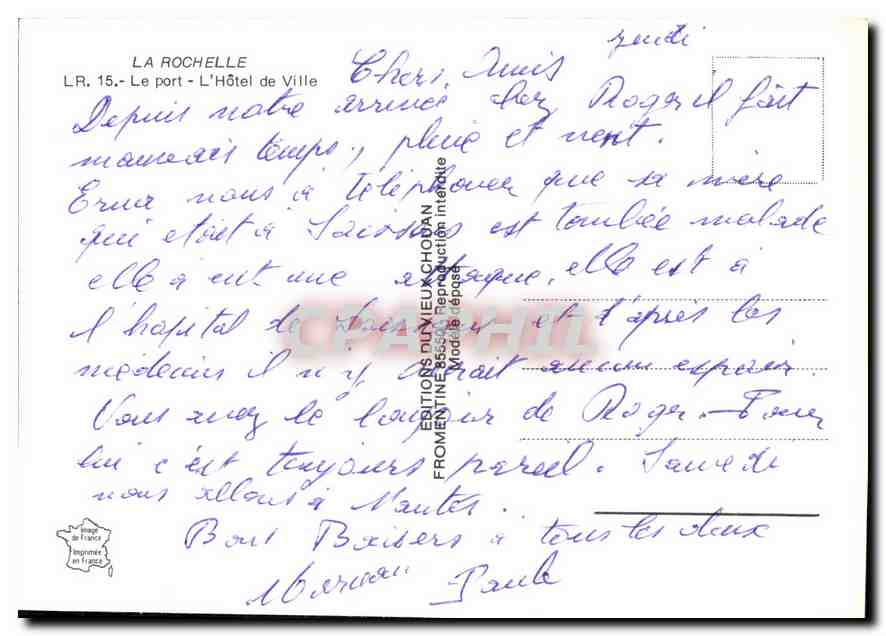 LA ROCHELLE
LR. 15.- Le port - L'Hôtel de Ville
jeudi
Chers Amis
Depuis notre arrivée chez Roger il fait
mauvais temps, pluie et vent.
nous à téléphoner que sa mère
qui était à Soissons est tombée malade
elle à eut une attaque, elle est à
l'hopital de Soissons et d'après les
médecins il n'y aurait aucun espoir.
Vous avez le bonjour de Roger. Pour
lui c'est toujours pareil. Samedi
nous allons à Nantes.
Bons Baisers à tous les deux
Paule
EDITIONS DU VIEUX CHOUAN
FROMENTINE 85550 Reproduction interdite
Modèle déposé
CPAPHIL
Image
de France
Imprimée
en France